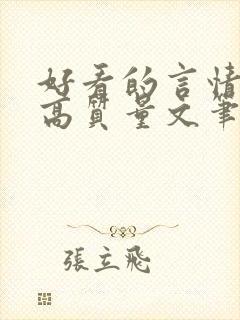 好看的言情
高质量文笔
張立飛